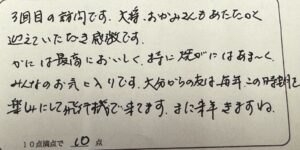 3回目の訪問です。大将、おかみさんもあたたかく
迎えていただき感激です。
かには最高においしく、特に焼がにはあま〜く
みんなのお気に入りです。大分からの友は、毎年、この時期を
楽みにして飛行機で来てます。また来年きますね。
10点満点で 10 点